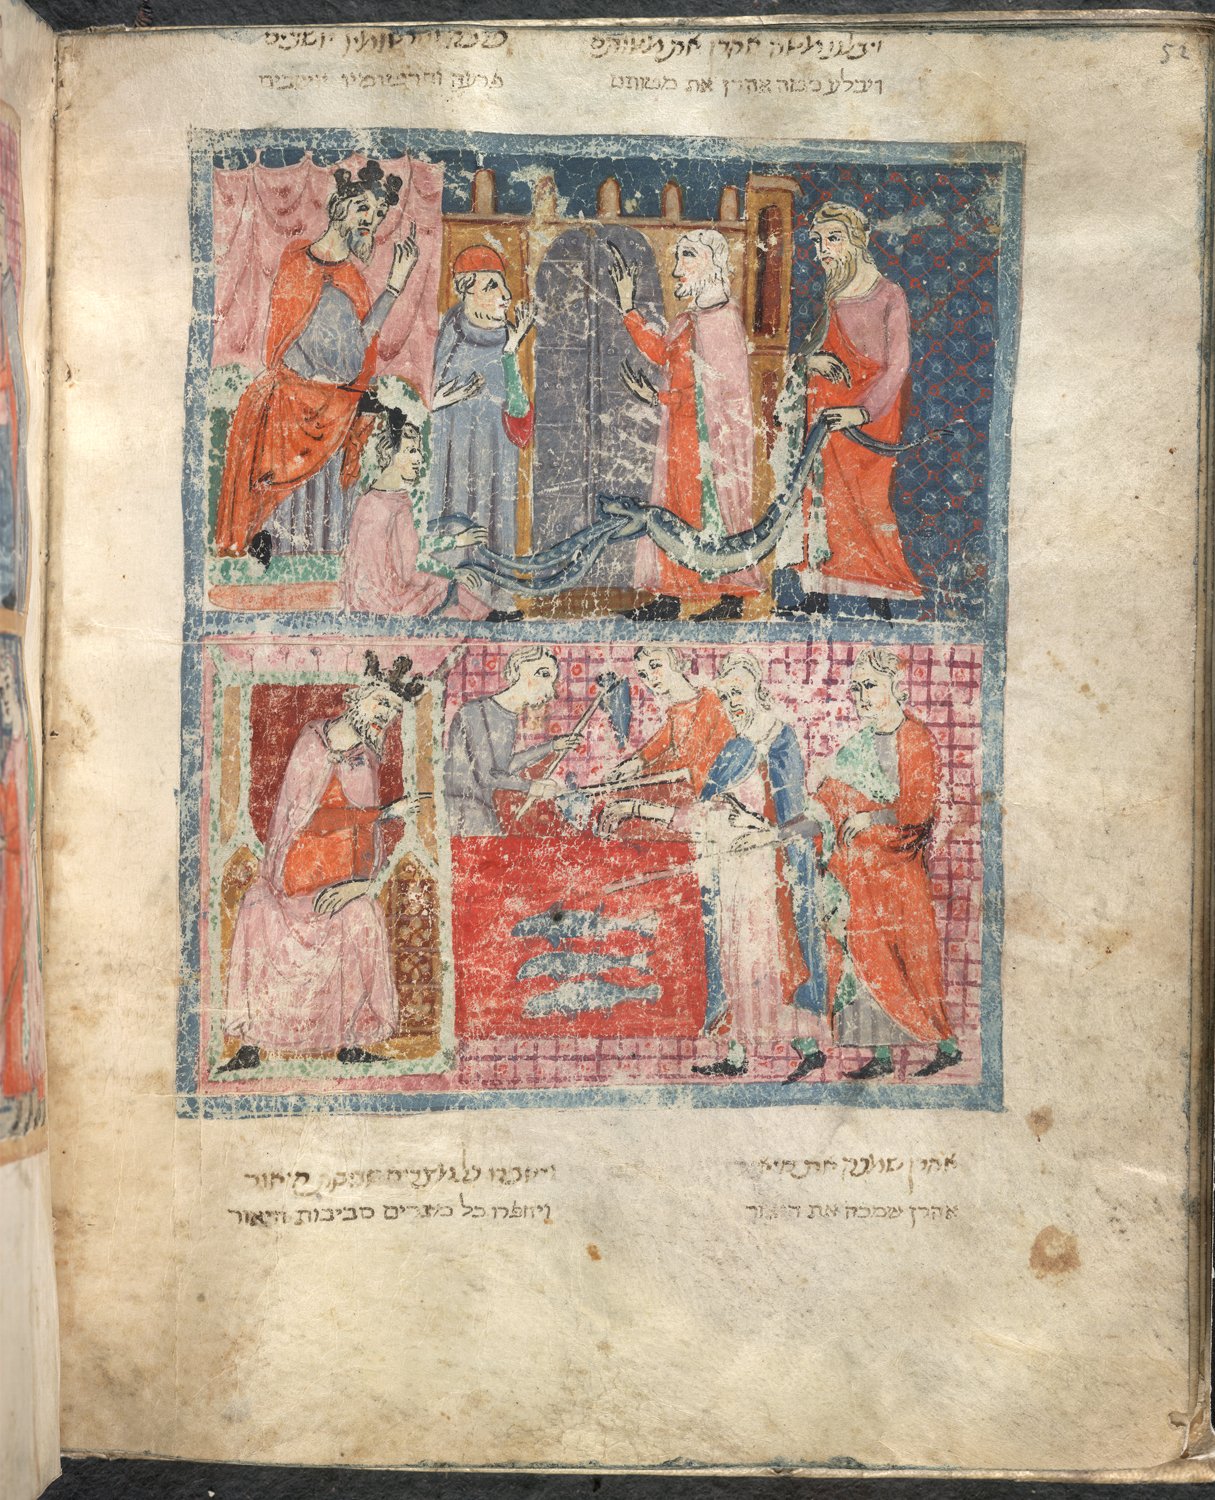 52
ויבלע מטה אהרן את מטותם
פרעה
ויבלע מטה אהרן את מטותם
פרעה וחרטומיו יושבים
אהרן שמכה את
ויחפרו כל מצרים היאור
אהרן שמכה את היאור
ויחפרו כל מצרים סביבות היאור